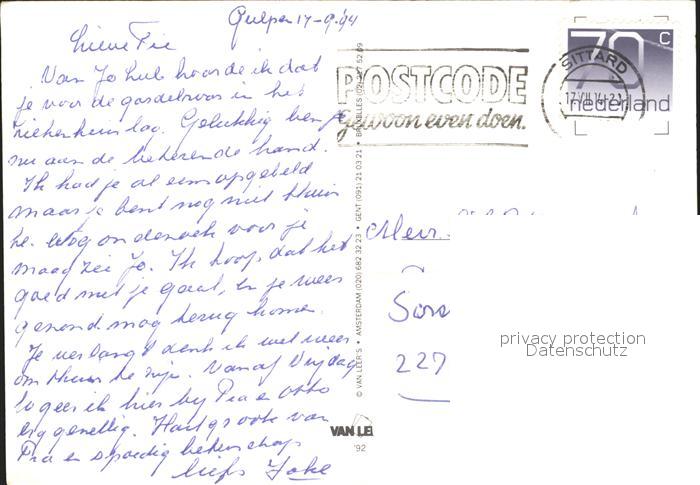 Gulpen 17-9-'94
Lieve Fie
Van Jo hub hoorde ik dat
je voor de gordelroos in het
ziekenhuis lag. Gelukkig ben je
nu aan de beterende hand.
Ik had je al eens opgebeld
maar je bent nog niet thuis
he. onderzoek voor je
maag zei Jo. Ik hoop, dat het
goed met je gaat, en je weer
gezond mag terug komen.
Je verlangt denk ik wel weer
om thuis te zijn. Vanaf Vrijdag
logeer ik hier by Pia en Otto
erg gezellig. Hart. gr. ook van
Pia en spoedig beterschap
liefs Joke
© VAN LEER'S • AMSTERDAM (020) 682 32 23 • GENT (091) 21 03 21 • BRUXELLES (02) 527 52 09
VAN LE
'92
POSTCODE
gewoon even doen.
SITTARD
70 c
nederland
Mevr.
227
privacy protection
Datenschutz